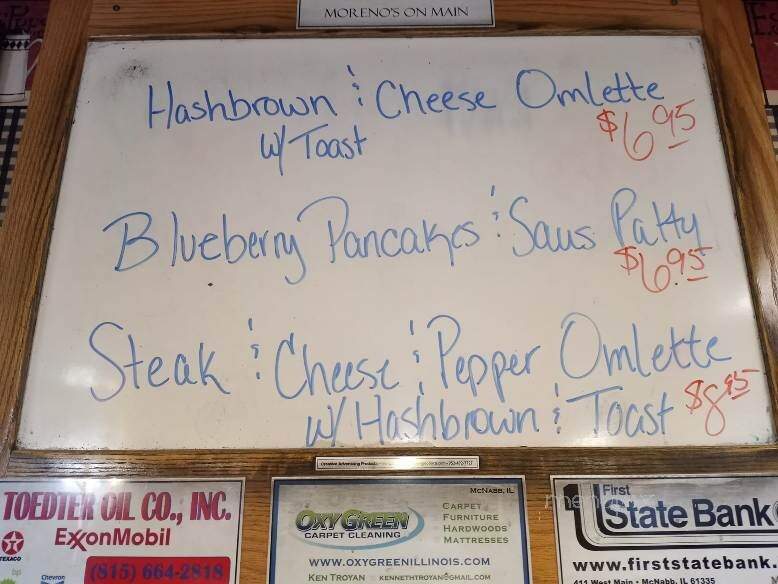 MORENO'S ON MAIN
Hashbrown & Cheese Omlette
w/ Toast $6.95
Blueberry Pancakes & Saus Patty
$6.95
Steak & Cheese & Pepper Omlette
w/ Hashbrown & Toast $8.95
TOEDTER OIL CO., INC.
ExxonMobil
TEXACO
bp Chevron
(815) 664-2818
McNABB, IL
OXY GREEN
CARPET CLEANING
CARPET
FURNITURE
HARDWOODS
MATTRESSES
WWW.OXYGREENILLINOIS.COM
KEN TROYAN KENNETHTROYAN@GMAIL.COM
First
State Bank
www.firststatebank.
411 West Main • McNabb, IL 61335